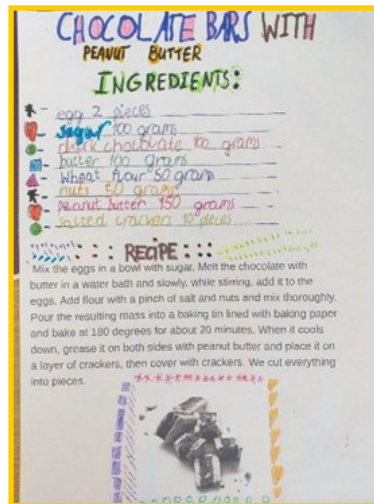 CHOCOLATE BARS WITH
PEANUT BUTTER
INGREDIENTS:
- egg 2 pieces
- sugar 100 grams
- dark chocolate 100 grams
- butter 100 grams
- wheat flour 50 grams
- nuts 50 grams
- peanut butter 150 grams
- salted crackers 10 pieces
RECIPE:
Mix the eggs in a bowl with sugar. Melt the chocolate with
butter in a water bath and slowly, while stirring, add it to the
eggs. Add flour with a pinch of salt and nuts and mix thoroughly.
Pour the resulting mass into a baking tin lined with baking paper
and bake at 180 degrees for about 20 minutes. When it cools
down, grease it on both sides with peanut butter and place it on
a layer of crackers, then cover with crackers. We cut everything
into pieces.